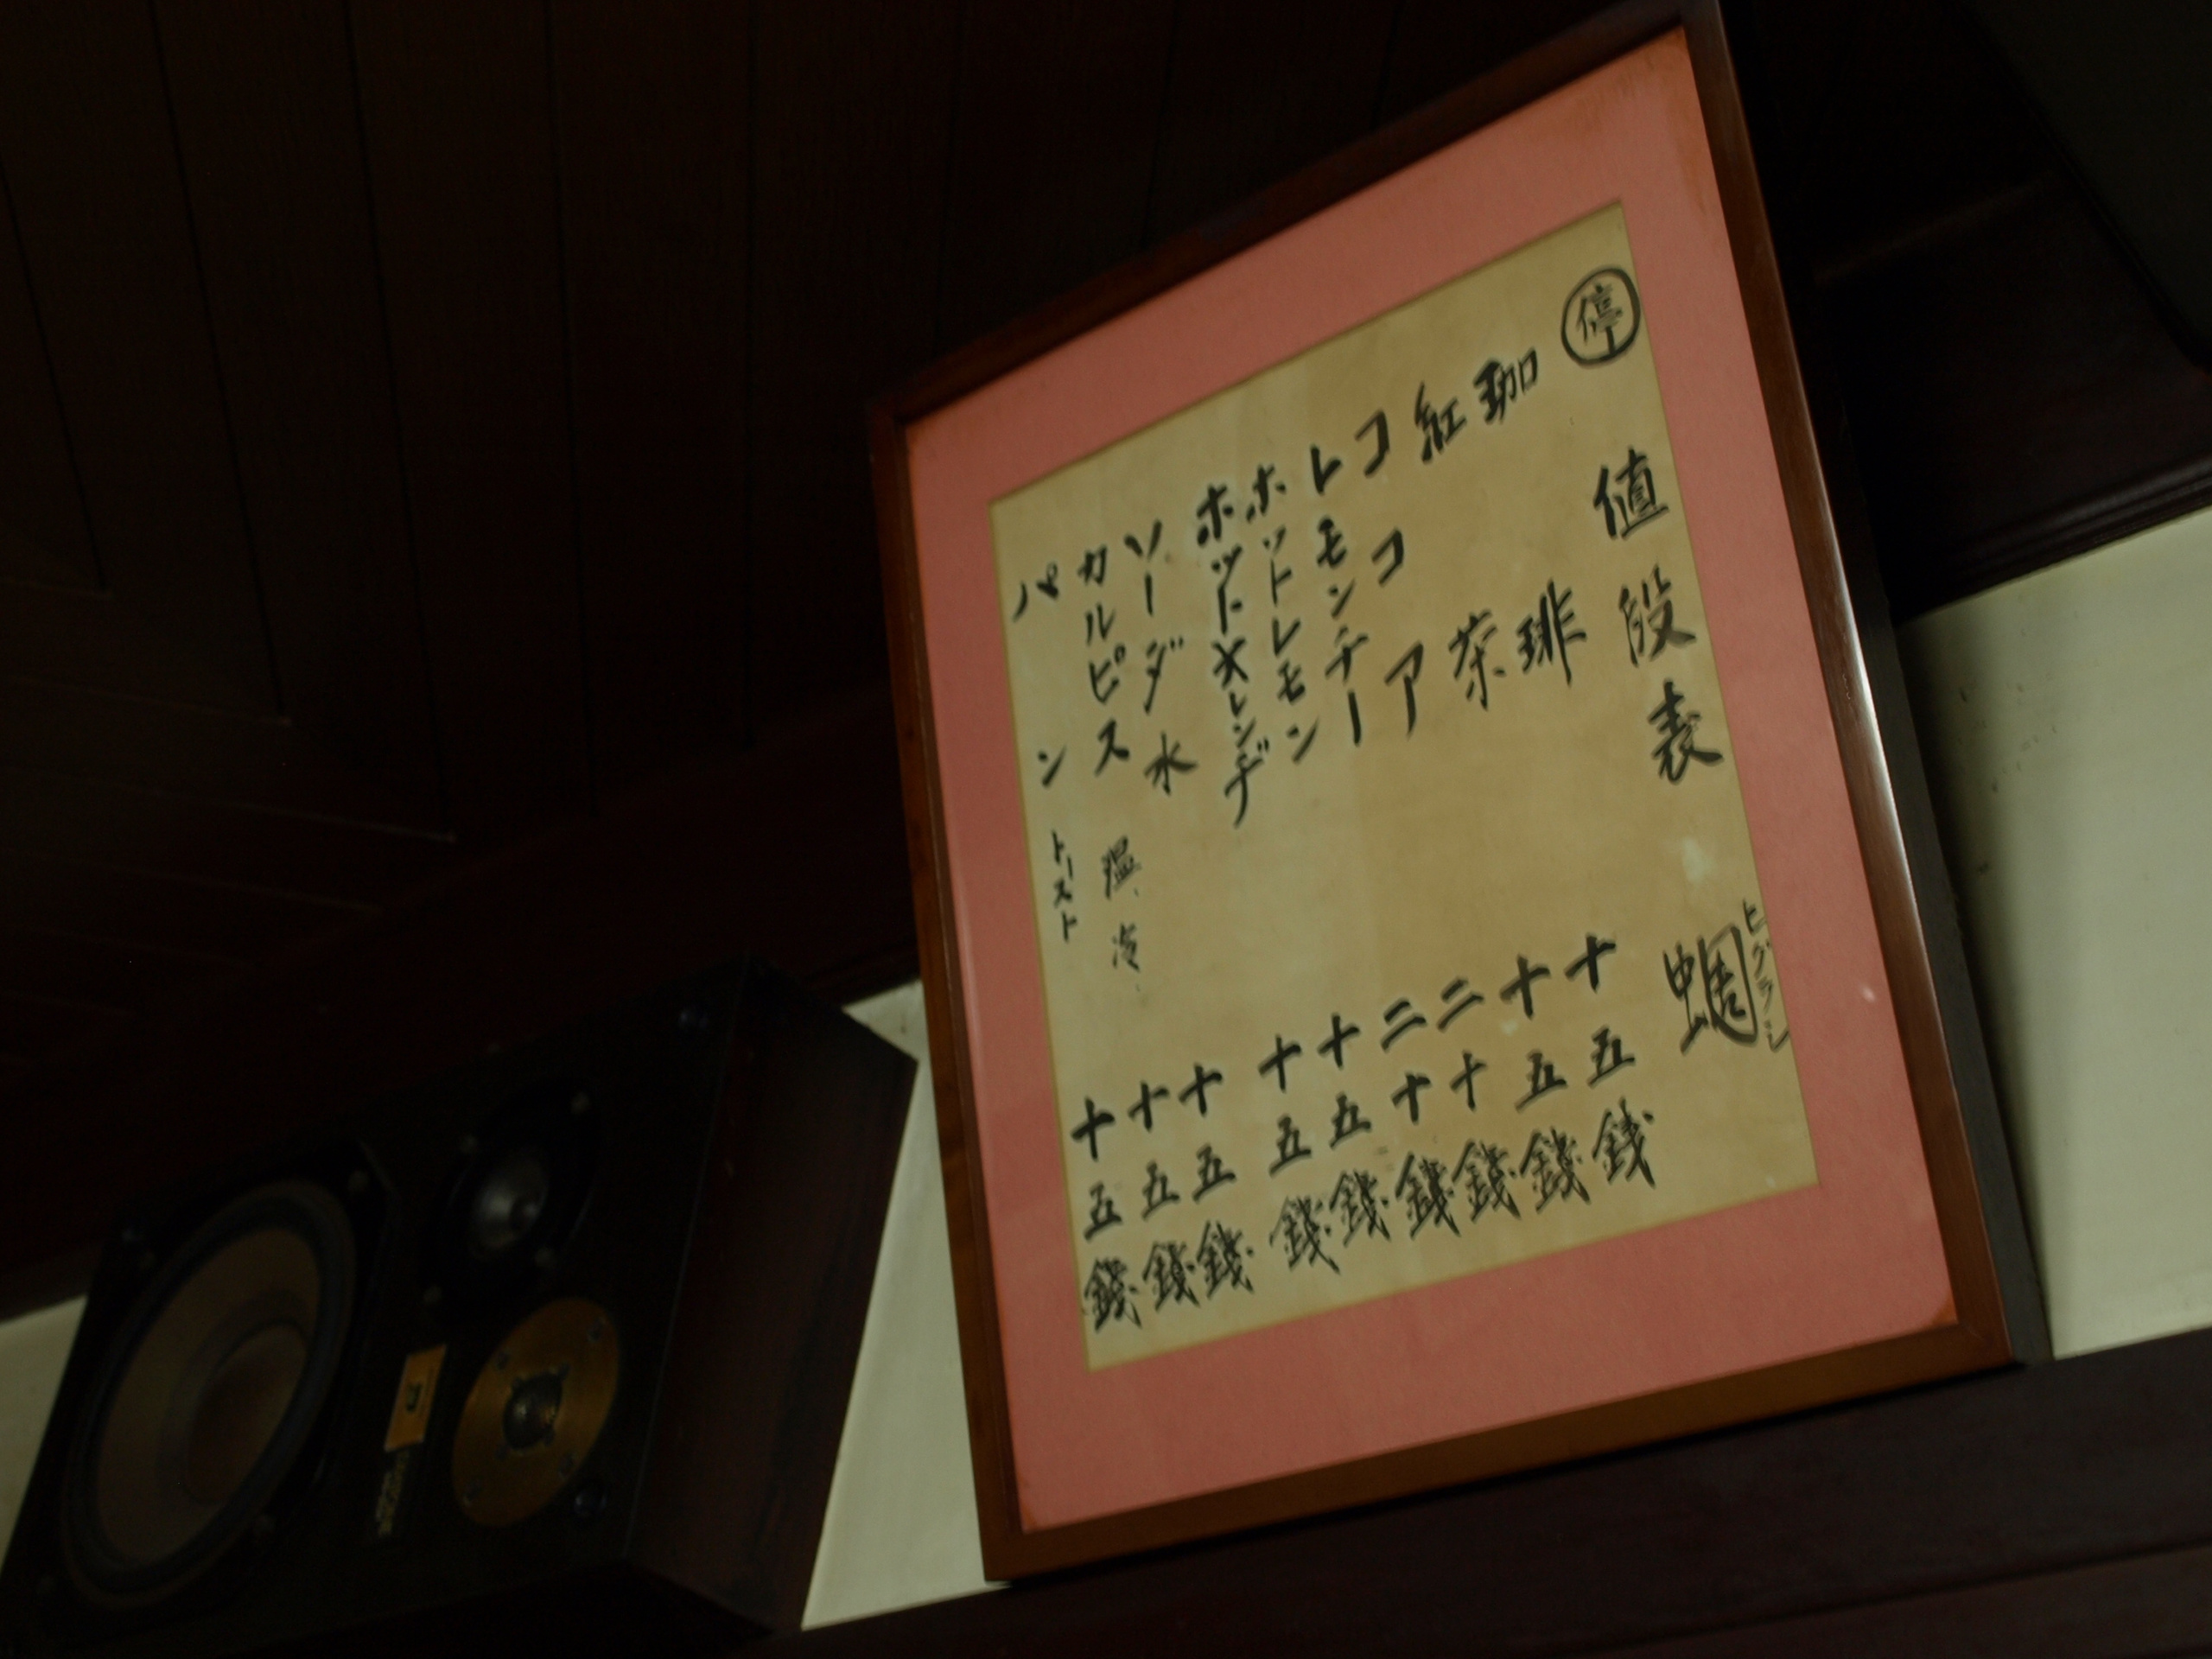 停 値段表 蜩 ヒグラシ
珈琲 十五銭
紅茶 十五銭
ココア 二十銭
レモンチー 二十銭
ホットレモン 十五銭
ホットオレンヂ 十五銭
ソーダ水 十五銭
カルピス 温、冷、 十五銭
パン トースト 十五銭